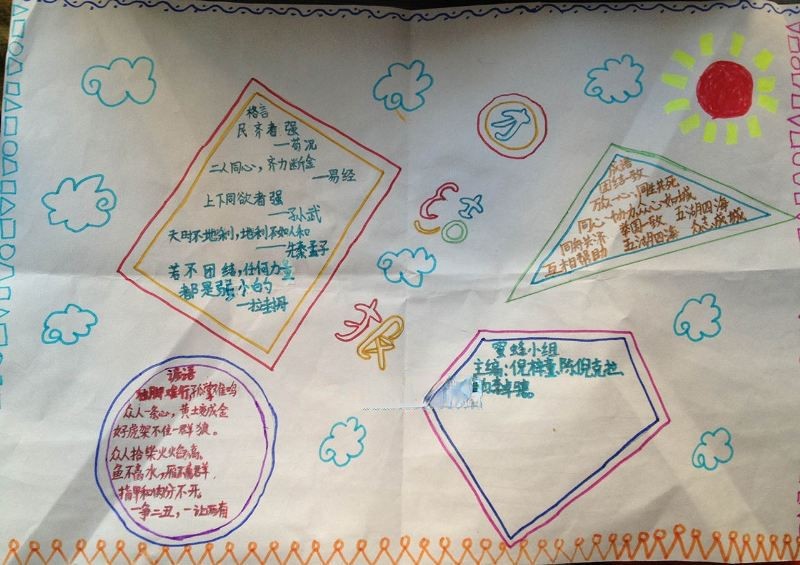 格言
民齐者强
——荀况
二人同心，齐力断金
——易经
上下同欲者强
——孙武
天时不地利，地利不如人和
——先秦孟子
若不团结，任何力量
都是弱小的
——拉封丹
成语
团结一致
万众一心，同生共死
同心协力众心如城
同舟共济 泰国一致 五湖四海
互相帮助 五湖四海 众志成城
谚语
独脚难行，孤掌难鸣
众人一条心，黄土变成金
好虎架不住一群狼。
众人拾柴火焰高。
鱼不离水，雁不离群
指甲和肉分不开
一争二丑，一让两有
蜜蜂小组
主编：倪梓童，陈倪克拉